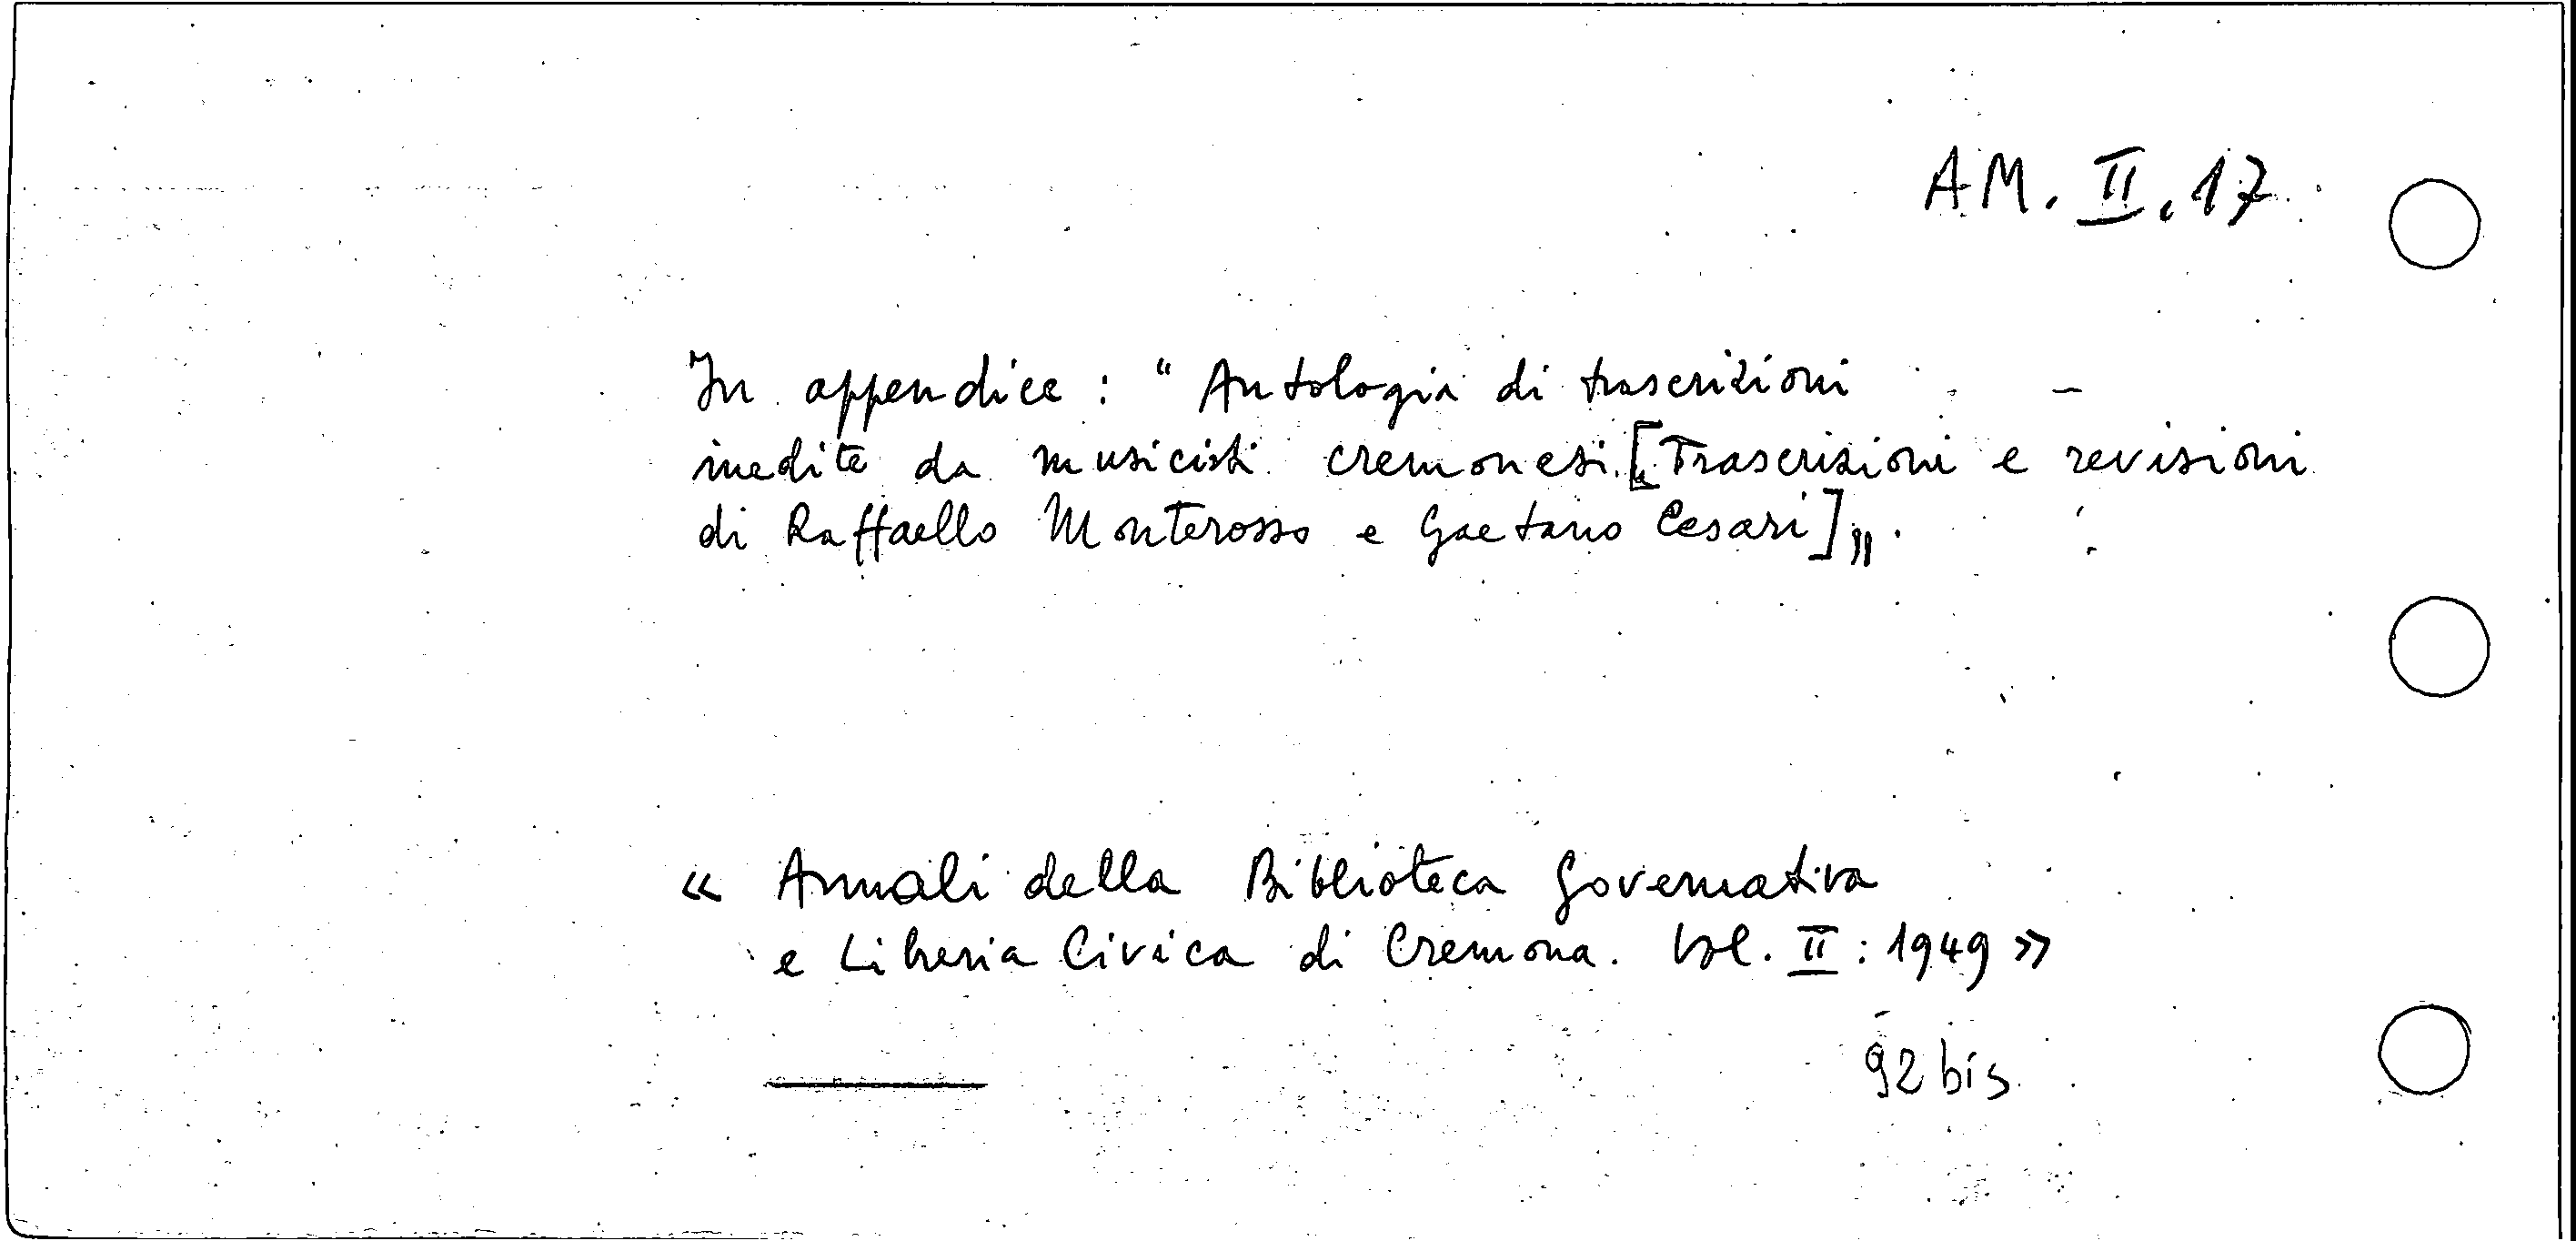 AM. II. 17
In appendice : “ Antologia di trascrizioni
inedite da musicisti cremonesi. [Trascrizioni e revisioni
di Raffaello Monterosso e Gaetano Cesari] „ .
« Annali della Biblioteca Governativa
e Libreria Civica di Cremona. Vol. II : 1949 »
92 bis